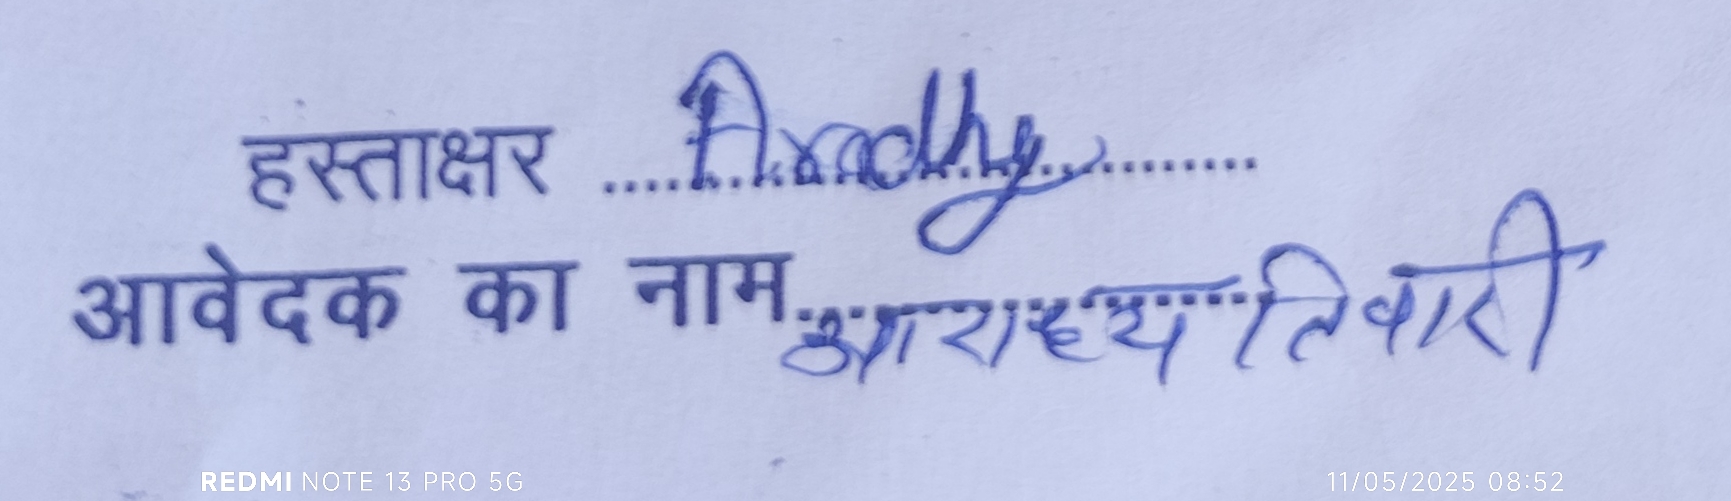 हस्ताक्षर ....Aradhy............
आवेदक का नाम................आराध्य तिवारी
REDMI NOTE 13 PRO 5G
11/05/2025 08:52